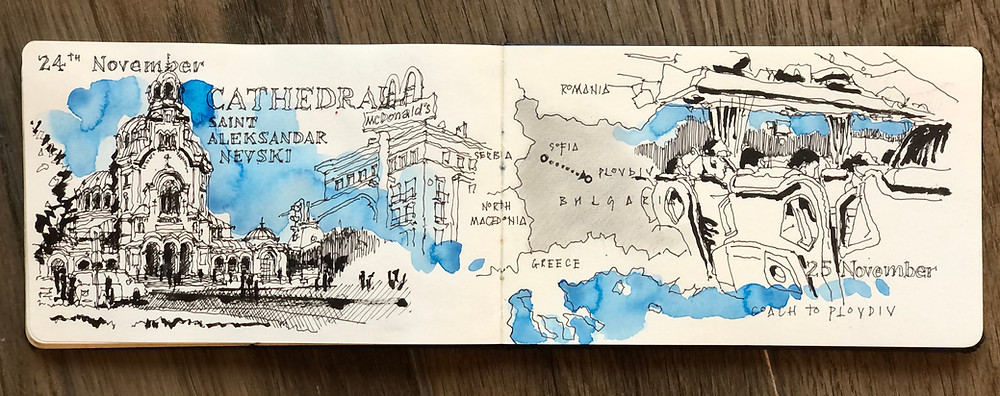 24TH November
CATHEDRAL
SAINT
ALEKSANDAR
NEVSKI
McDonald's
ROMANIA
SERBIA
SOFIA
PLOVDIV
BULGARIA
NORTH
MACEDONIA
GREECE
25 November
COACH TO PLOVDIV